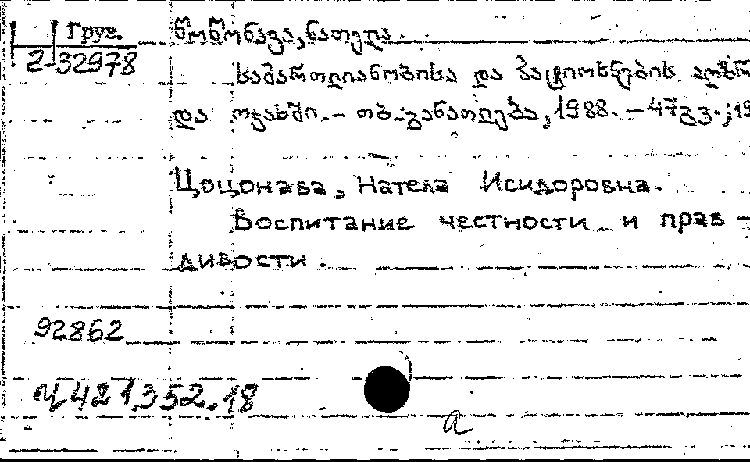 Груз.
2-32978
წოწონავა, ნათელა.
სამართლიანობისა და პატიოსნების აღზრ
და ოჯახში. - თბ.: განათლება, 1988. - 47გვ.; 19
Цоцонава, Натела Исидоровна.
Воспитание честности и прав -
дивости.
92862
Ч 421.352.18
a